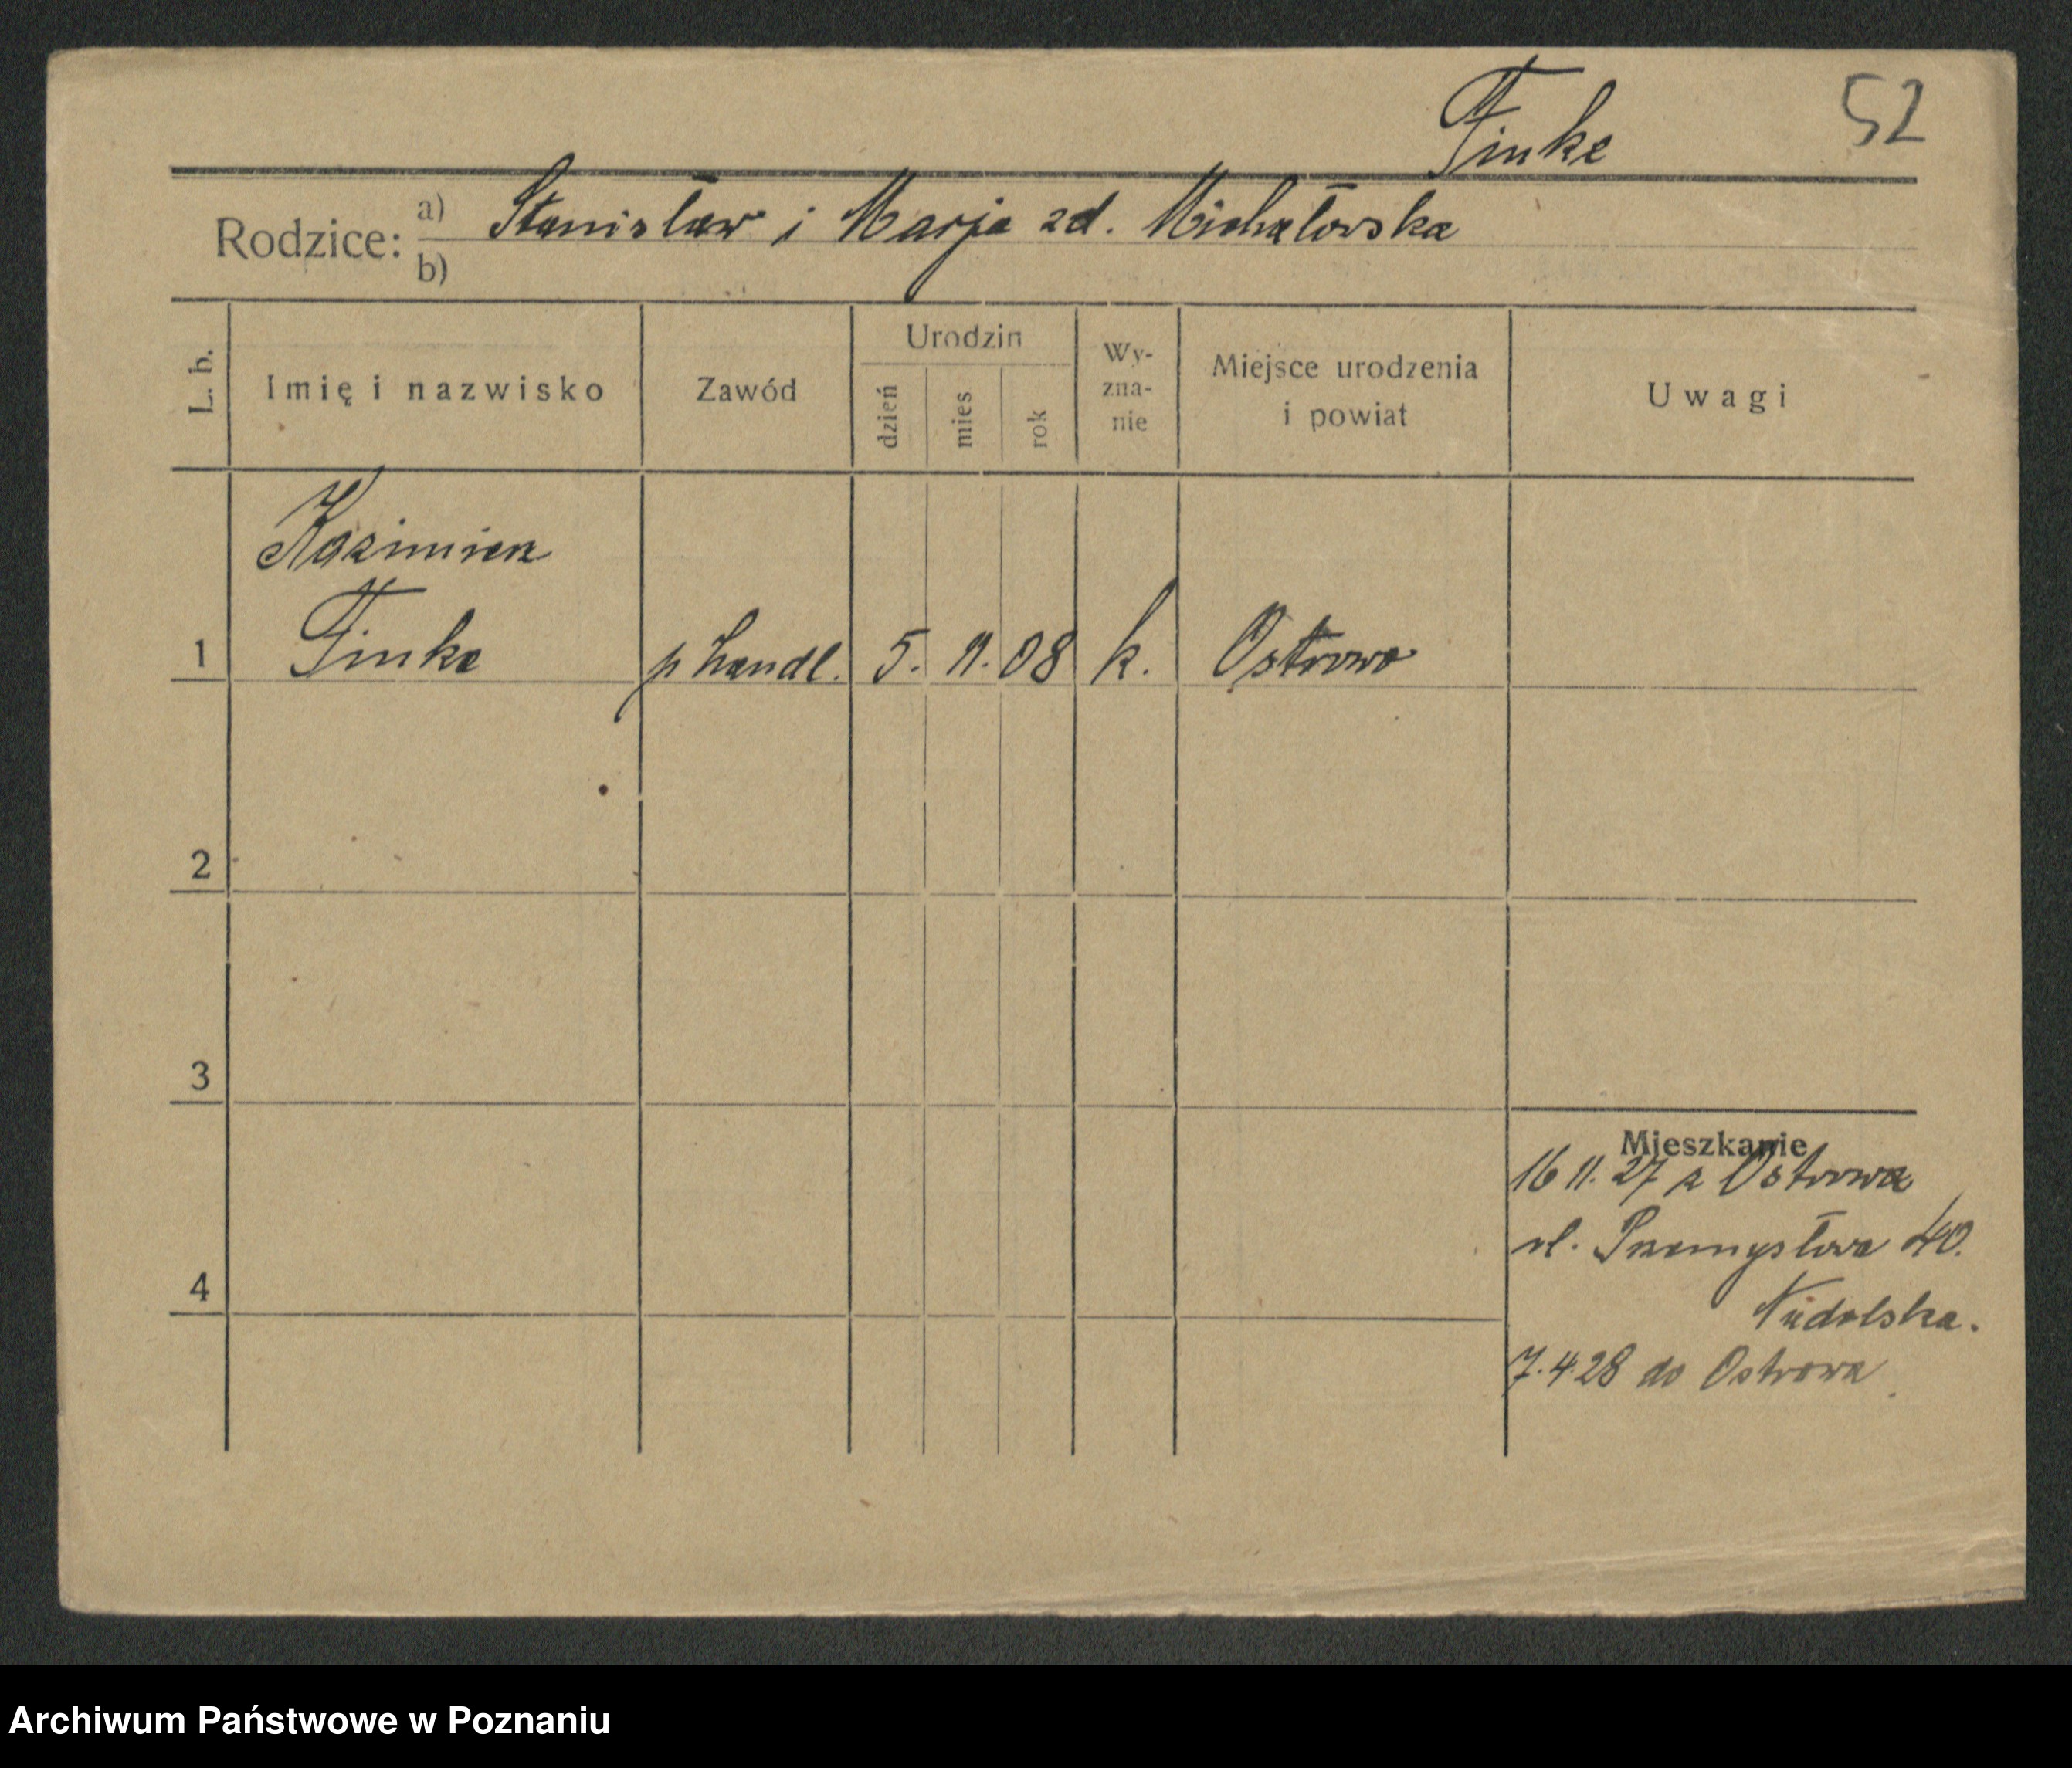 Finke 52
Rodzice: a) Stanisław i Marja zd. Michałowska
b)
L. b. Imię i nazwisko Zawód Urodzin dzień mies rok Wy-zna-nie Miejsce urodzenia i powiat Uwagi
Kazimierz
1 Finke p handl. 5. 11. 08 k. Ostrowo
2
3
Mieszkanie
16 11. 27 z Ostrowa
ul. Przemysłowa 40.
4
7.4.28 do Ostrowa
Archiwum Państwowe w Poznaniu